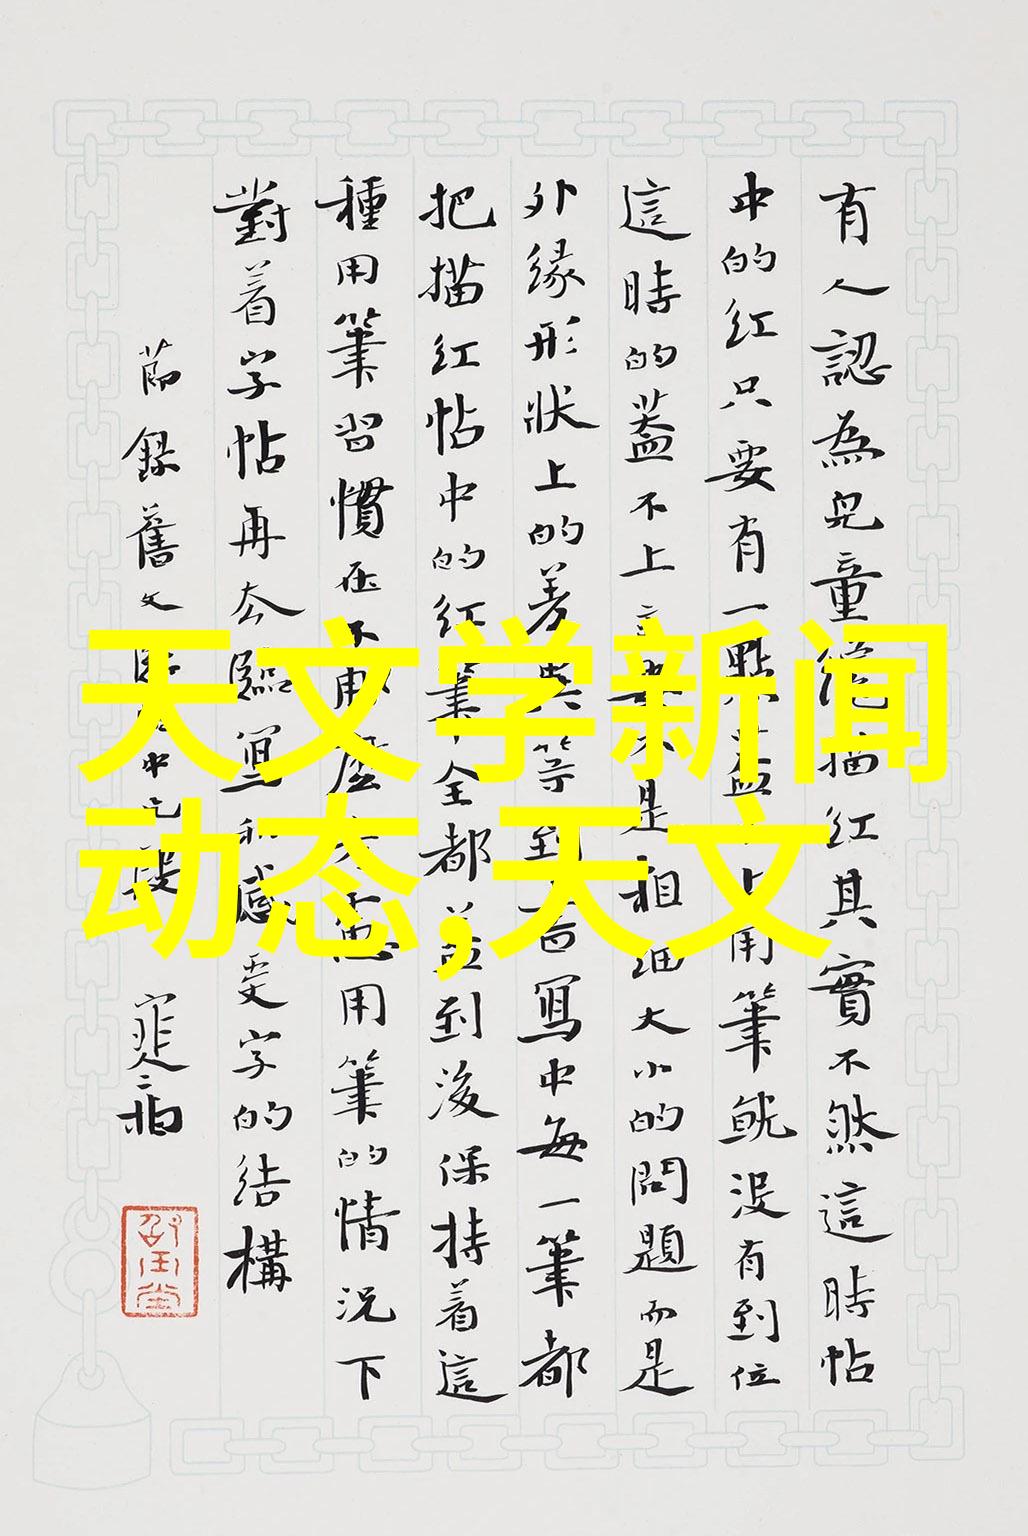 有人認為兒童描紅其實不然這時帖
中的红只要有一點蓋上用筆就没有到位
這時的蓋不上是粗细大小的問題而是
外缘形狀上的差異等到書寫中每一筆都
把描红帖中的红筆全都蓋到後保持着這
種用筆習慣在不用用筆的情况下
對着字帖再去臨寫和感受字的结構
節錄舊文中
天文学新闻
动态,天文